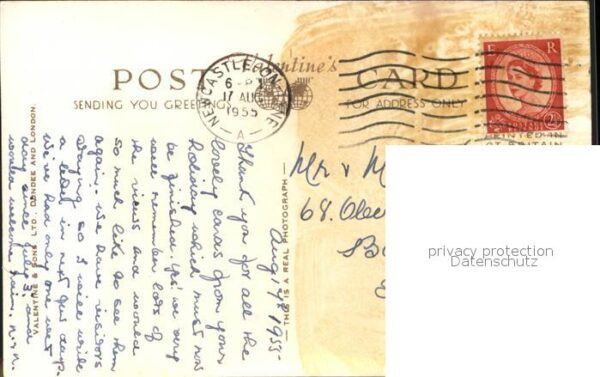 Valentine's
POST CARD
SENDING YOU GREETINGS
FOR ADDRESS ONLY
NEWCASTLE ON TYNE
6-
17 AUG
1955
A
E R
PRINTED IN
GT BRITAIN
THIS IS A REAL PHOTOGRAPH
VALENTINE & SONS LTD., DUNDEE AND LONDON.
Aug, 17th 1955-
Thank you for all the
lovely cards from your
holiday which must now
be finished. Yes we very
well remember lots of
the views and would
so much like to see them
again. We have visitors
staying so I will write
a letter in next few days.
We've had only one wet
day since July 3rd and
would welcome rain.
Mr & M
68.
privacy protection
Datenschutz